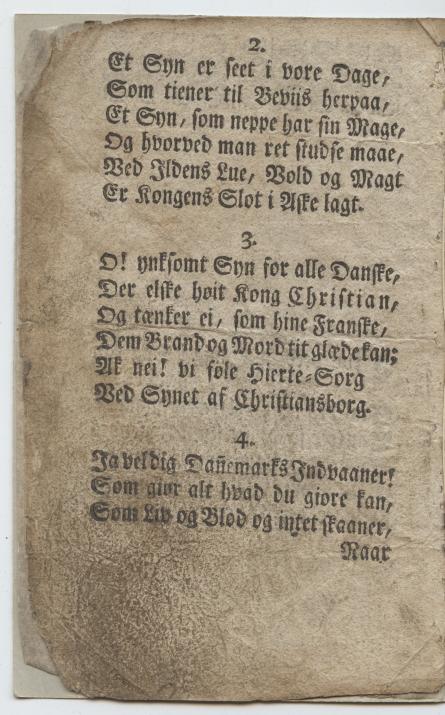 2.
Et Syn er seet i vore Dage,
Som tiener til Beviis herpaa,
Et Syn, som neppe har sin Mage,
Og hvorved man ret studse maae,
Ved Ildens Lue, Vold og Magt
Er Kongens Slot i Aske lagt.
3.
O! ynksomt Syn for alle Danske,
Der elske høit Kong Christian,
Og tænker ei, som hine Franske,
Dem Brand og Mord tit glæde kan;
Ak nei! vi føle Hierte-Sorg
Ved Synet af Christiansborg.
4.
Ja veldig Dañemarks Indvaaner!
Som giør alt hvad du giøre kan,
Som Liv og Blod og intet skaaner,
Naar